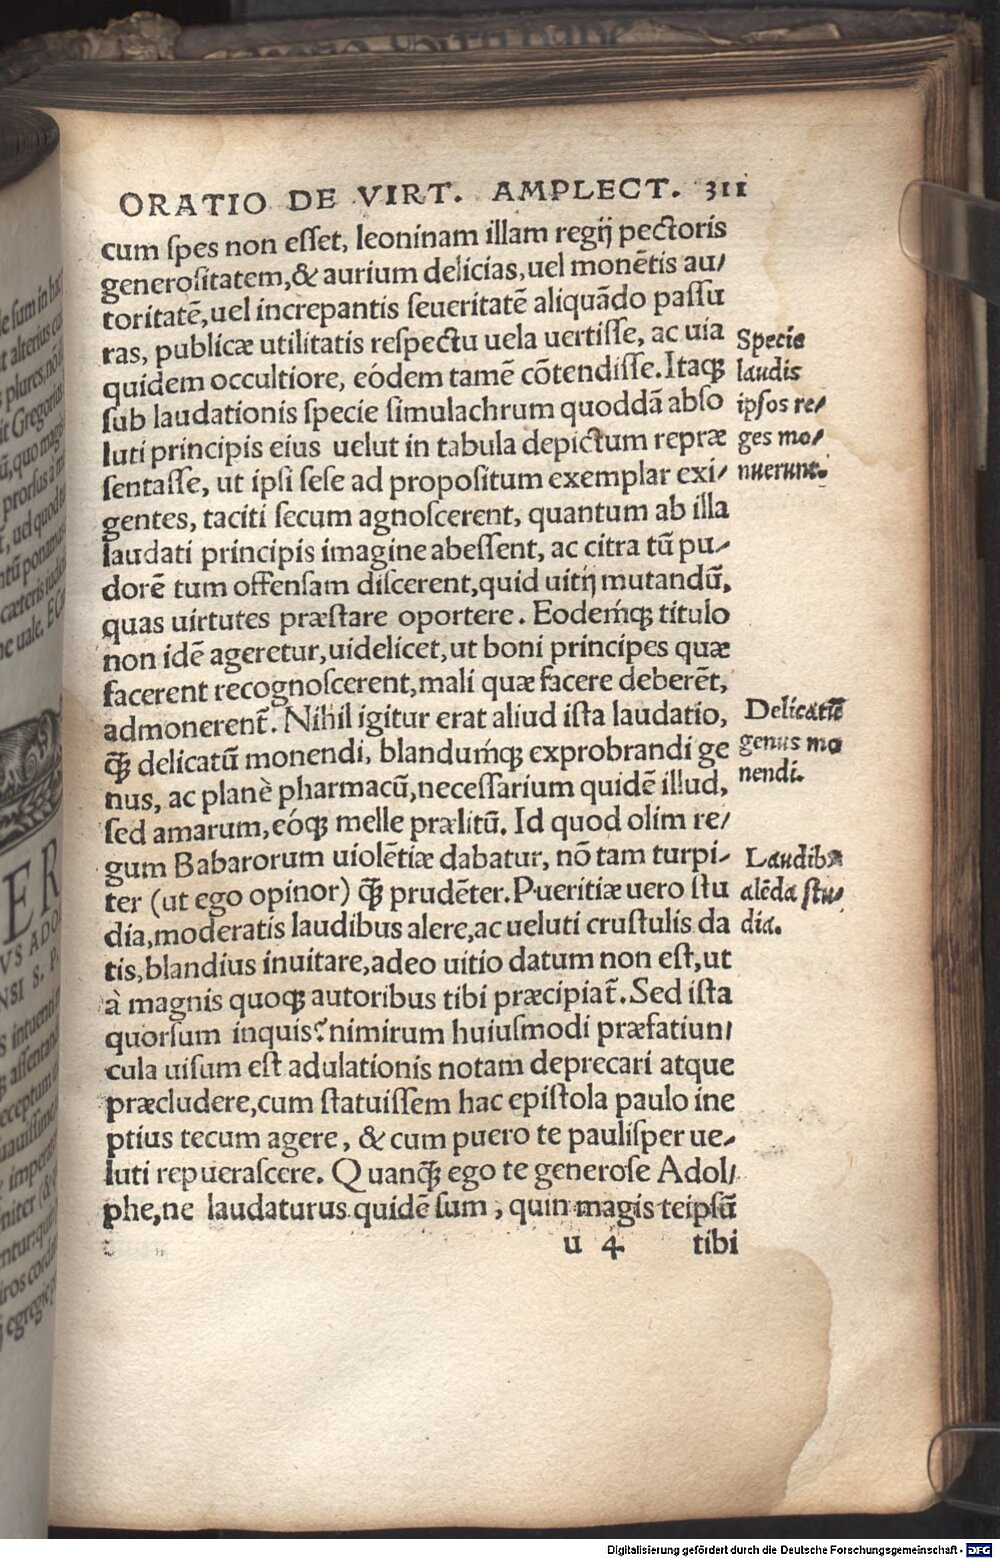 ORATIO DE VIRT. AMPLECT. 311
cum ſpes non eſſet, leoninam illam regij pectoris
generoſitatem, & aurium delicias, uel monētis au/
toritatē, uel increpantis ſeueritatē aliquādo paſſu
ras, publicæ utilitatis reſpectu uela uertiſſe, ac uia
quidem occultiore, eódem tamē cōtendiſſe. Itaq;
ſub laudationis ſpecie ſimulachrum quoddā abſo
luti principis eius uelut in tabula depictum repræ
ſentaſſe, ut ipſi ſeſe ad propoſitum exemplar exi/
gentes, taciti ſecum agnoſcerent, quantum ab illa
laudati principis imagine abeſſent, ac citra tū pu/
dorē tum offenſam diſcerent, quid uitij mutandū,
quas uirtutes præſtare oportere. Eodemq́; titulo
non idē ageretur, uidelicet, ut boni principes quæ
facerent recognoſcerent, mali quæ facere deberēt,
admonerent̃. Nihil igitur erat aliud iſta laudatio,
q̃ꝫ delicatū monendi, blandumq́; exprobrandi ge
nus, ac planè pharmacū, neceſſarium quidē illud,
ſed amarum, eóq; melle prælitū. Id quod olim re/
gum Babarorum uiolētiæ dabatur, nō tam turpi/
ter (ut ego opinor) q̃ꝫ prudēter. Pueritiæ uero ſtu
dia, moderatis laudibus alere, ac ueluti cruſtulis da
tis, blandius inuitare, adeo uitio datum non eſt, ut
à magnis quoq; autoribus tibi præcipiat̃. Sed iſta
quorſum inquis? nimirum huiuſmodi præfatiun/
cula uiſum eſt adulationis notam deprecari atque
præcludere, cum ſtatuiſſem hac epiſtola paulo ine
ptius tecum agere, & cum puero te pauliſper ue/
luti repueraſcere. Quanq̃ꝫ ego te generoſe Adol/
phe, ne laudaturus quidē ſum, quin magis teipſū
u 4 tibi
Specie
laudis
ipſos re/
ges mo/
nuerunt.
Delicatū
genus mo
nendi.
Laudibꝰ
alēda ſtu/
dia.
Digitalisierung gefördert durch die Deutsche Forschungsgemeinschaft - DFG